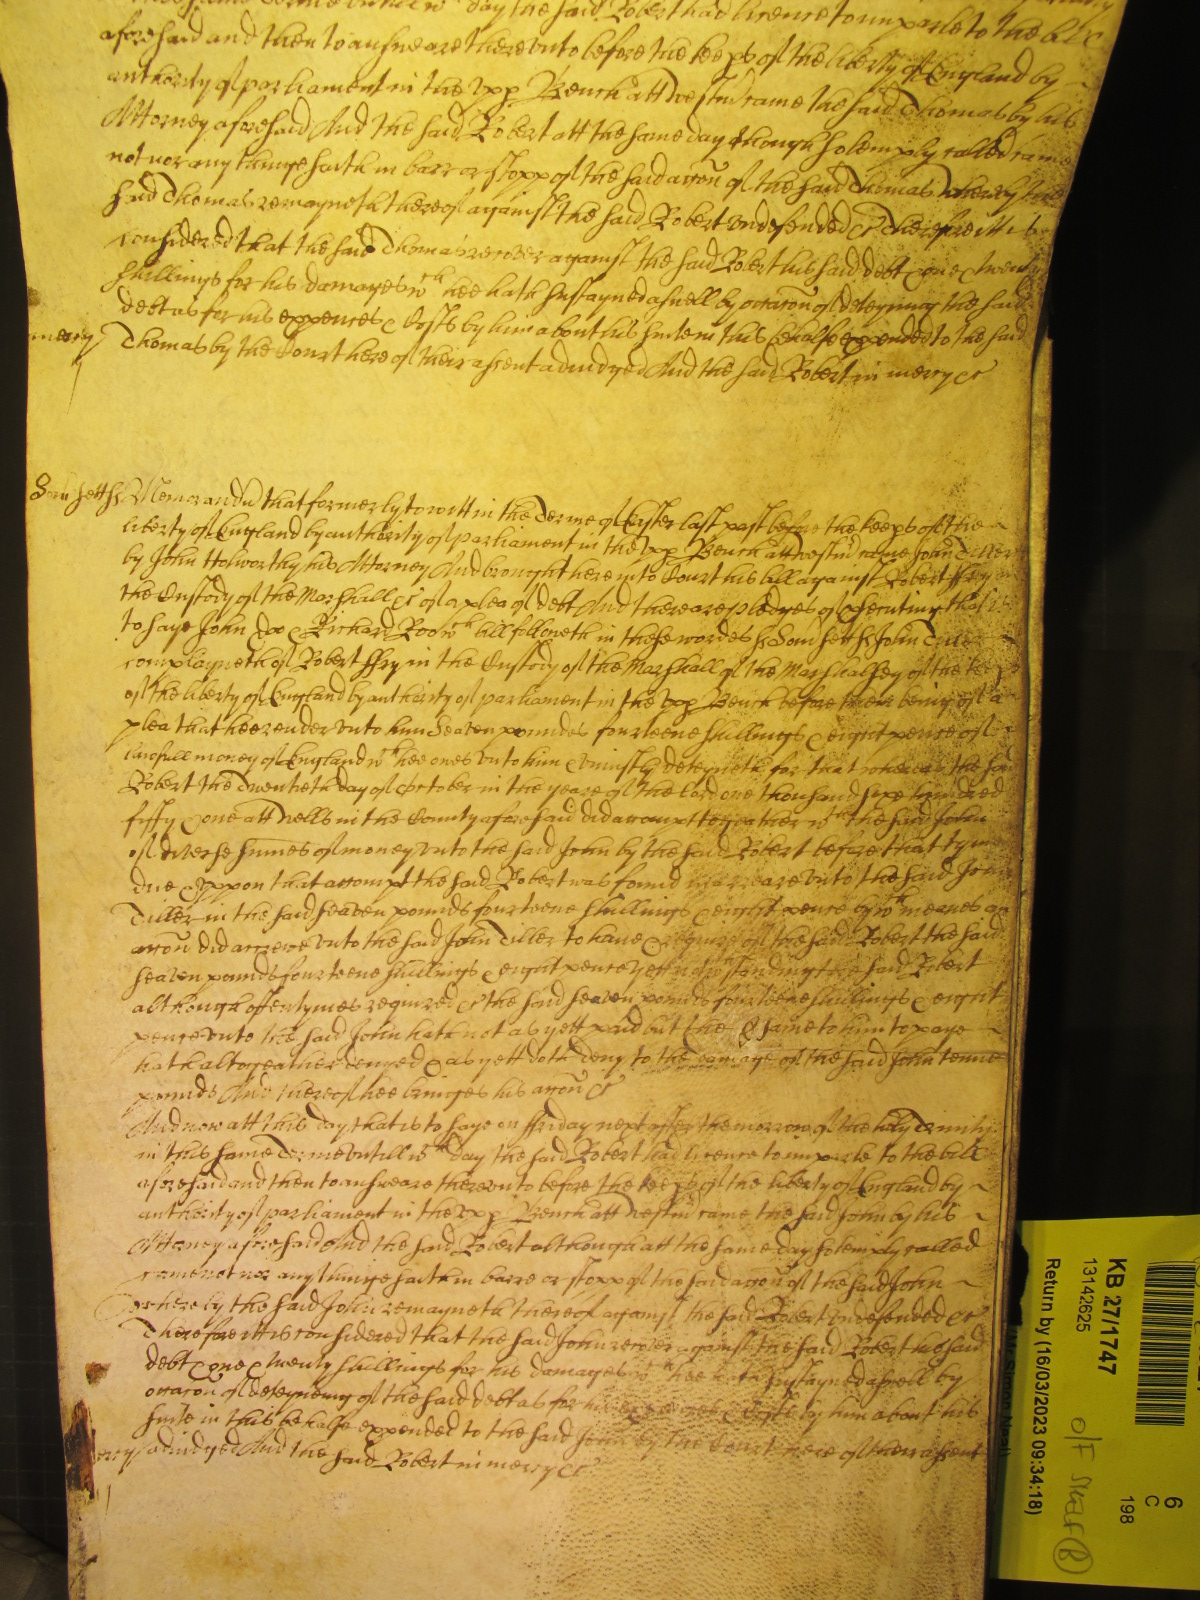 this same Terme untill wch day the said Robert had licence to imparle to the bill
aforesaid and then to answeare thereunto before the keeps of the liberty of England by
authority of parliament in the upp Bench att Westmr came the said Thomas by his
Attorney aforesaid And the said Robert att the same day though solemply called came
not nor any thinge saith in barr or stopp of the said accon of the said Thomas whereby the
said Thomas remayneth thereof against the said Robert undefended &c Therefore itt is
considered that the said Thomas recover against the said Robert his said debt & one & twenty
shillings for his damages wch hee hath susteyned aswell by occacon of deteyning the said
debt as for his expences & Costs by him about his suite in this behalfe expended to the said
mercy Thomas by the Court here of their assent adiudged And the said Robert in mercy &c
Som~sett ss Memorandu that formerly to witt in the Terme of Easter last past before the keeps of the
liberty of England by authority of parliament in the upp Bench att Westmr came John Tiller
by John Holworthy his Attorney And brought here into Court his bill against Robert ffry in
the Custody of the Marshall &c of a plea of debt And there are pledges of prosecuting that is
to saye John Doo & Richard Roo wch bill followeth in these wordes ss Som~sett ss John Tiller
complayneth of Robert ffry in the Custody of the Marshall of the Marshalsey of the keeps
of the liberty of England by authority of parliament in the upp Bench before them being of a
plea that hee render unto him Seaven pounds fourteene shillings & eight pence of
lawfull money of England wch hee owes unto him & uniustly deteyneth for that whereas the said
Robert the Twentieth day of October in the yeare of the Lord one thousand sixe hundred
fifty & one att Wells in the County aforesaid did accompt togeather wth the said John
of diverse sumes of money unto the said John by the said Robert before that tyme
due & uppon that accompt the said Robert was found in arreare unto the said John
Tiller in the said seaven pounds fourteene shillings & eight pence by wch meanes an
accon did accrewe unto the said John Tiller to have & require of the said Robert the said
seaven pounds fourteene shillings & eight pence yett notwthstanding the said Robert
although oftentymes required &c the said seaven pounds fourteene shillings & eight
pence unto the said John hath not as yett paid but the same to him to paye
hath altogeather denyed & as yett doth deny to the damage of the said John tenne
pounds And thereof hee bringes his accon &c
And now att this day that is to saye on ffriday next after the morrow of the holy Trinity
in this same Terme untill wch day the said Robert had licence to imparle to the bill
aforesaid and then to answeare thereunto before the keeps of the liberty of England by
authority of parliament in the upp Bench att Westmr came the said John by his
Attorney aforesaid And the said Robert although att the same day solemply called
came not nor any thinge saith in barre or stopp of the said accon of the said John
whereby the said John remayneth thereof against the said Robert undefended &c
Therefore itt is considered that the said John recover against the said Robert his said
debt & one & twenty shillings for his damages wch hee hath susteyned aswell by
occacon of deteyneing of the said debt as for his expences & Costs by him about his
suite in this behalfe expended to the said John by the Court here of their assent
mercy adiudged And the said Robert in mercy &c
KB 27/1747
13142625
Return by (16/03/2023 09:34:18)
6
C
198